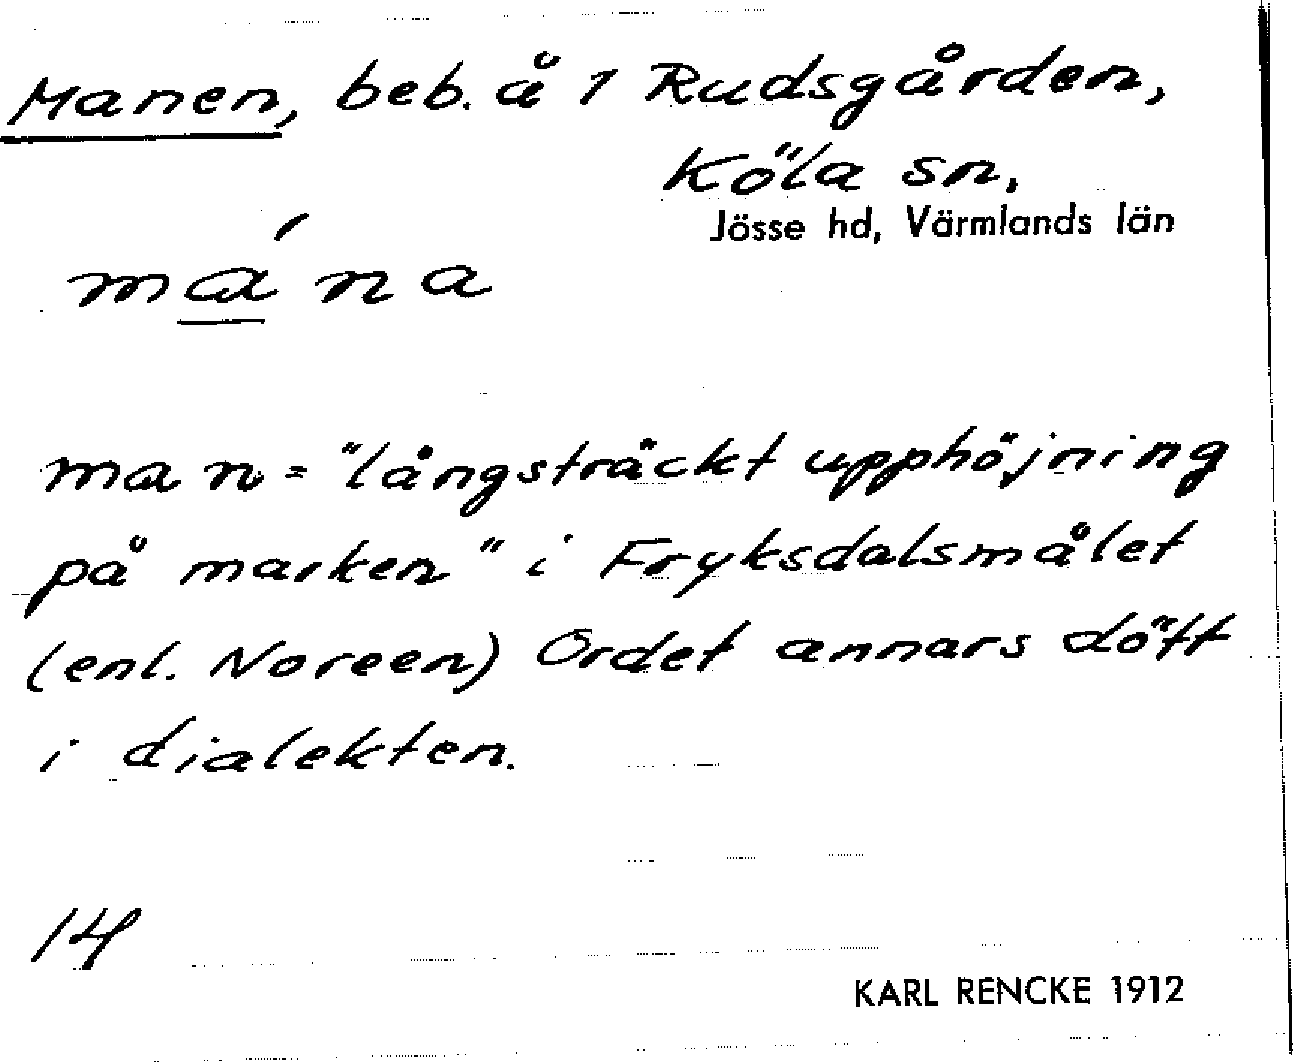 Manen, beb. å 1 Rudsgården,
Köla sn,
Jösse hd, Värmlands län
mána
man = "långsträckt upphöjning
på marken" i Fryksdalsmålet
(enl. Noreen) Ordet annars dött
i dialekten.
14
KARL RENCKE 1912